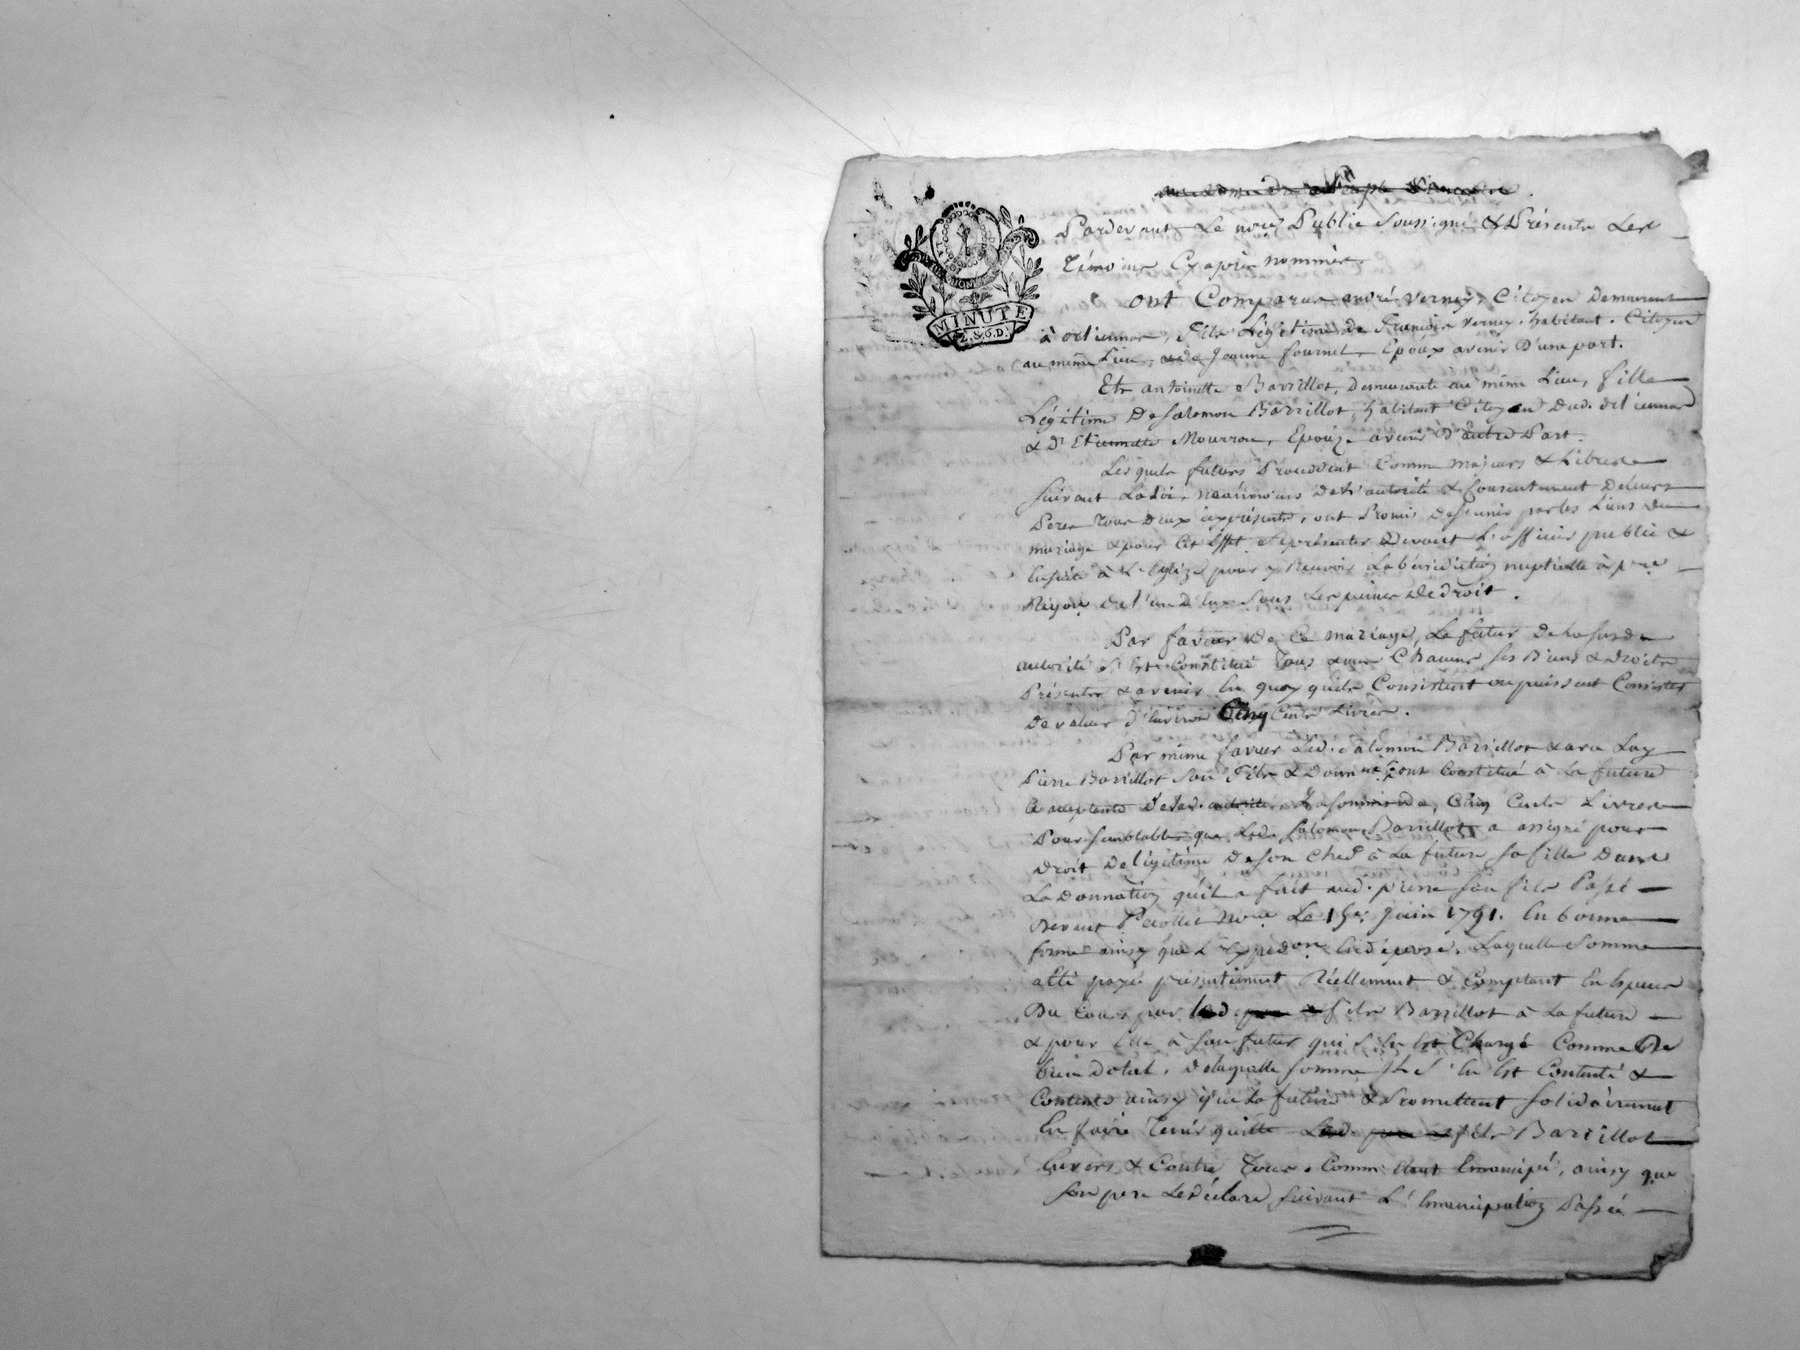 Pardevant Le nore Public Soussigné & Présents Les
Témoins Cyaprès nommés
ont Comparu andré verney, Citoyen demeurant
à orliennas, fils Légitime de François verney, habitant Citoyen
au même Lieu, & de Jeanne fournel, Epoux avenir D'une part.
Et antoinette Barrillot, Demeurante au même Lieu, fille
Légitime De Salomon Barrillot, habitant Citoyen Dud. orliennas
& D' Etiennette Mourron, Epouze avenir D'autre Part.
Lesquels futurs Procedant Comme majeurs & Libres
suivant La Loi, neaûmoins De L'autorité & Consentement De Leurs
Peres Tous Deux icy présents, ont Promis De s'unir par les Liens du
mariage & pour Cet Effet se présenter Devant L'officier public &
Ensuite à L'Eglize pour y Recevoir La bénédiction nuptialle à p
Réquis. de l'un d'Eux Sous Les peines De droit.
Par faveur De Ce mariage, Le futur De La susde
autorité S'Est Constitué Tous & un Chacuns ses Biens & droits
Présents & avenir En quoy qu'ils Consistent ou puissent Consister
De valeur d'Environ Cinq Cents Livres.
Par même faveur Led. Salomon Barrillot & avec Luy
Pierre Barrillot Son fils & Donnatre ont Constitué à La future
Acceptante De lad. autorité La somme de Cinq Cents Livres
Pour semblable que Led. Salomon Barrillot a assigné pour
Droit De légitime De son Chef à La future sa fille Dans
La Donnation qu'il a fait aud. pierre son fils Passé
Devant Perollet nore Le 15e Juin 1791. En bonne
forme ainsy que L'Expedon Laquelle Somme
a Eté payé présentement Réellement & Comptant En Espèces
Du Cours par led. fils Barrillot à La future
& pour Elle à Son futur qui S'En Est Chargé Comme De
bien dotal, De laquelle somme Il S'En Est Contenté &
Contente ainsy que La future & Promettent solidairement
En faire Tenir quitte Led. fils Barrillot
Envers & Contre Tous, Comme Etant Emancipé, ainsy que
son pere Le déclare suivant L'Emancipation Passée
MINUTE
2.S.6.D.